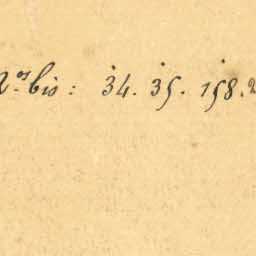 N.os bis: 34. 35. 158.